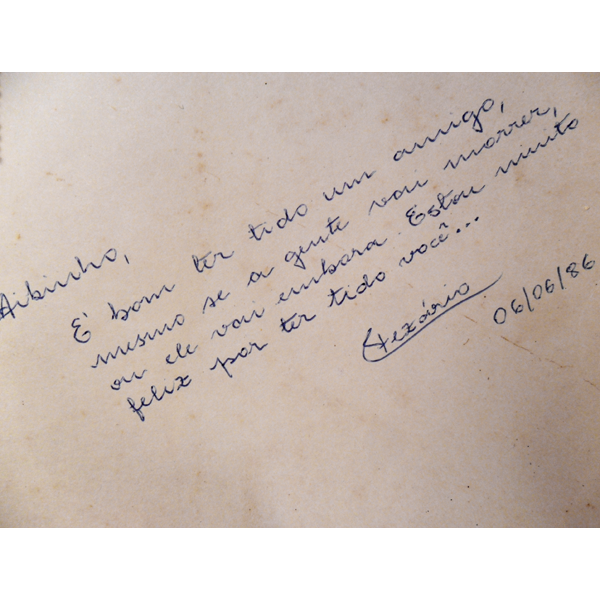 Aibinho,
É bom ter tido um amigo,
mesmo se a gente vai morrer,
ou ele vai embora. Estou muito
feliz por ter tido você...
06/06/86